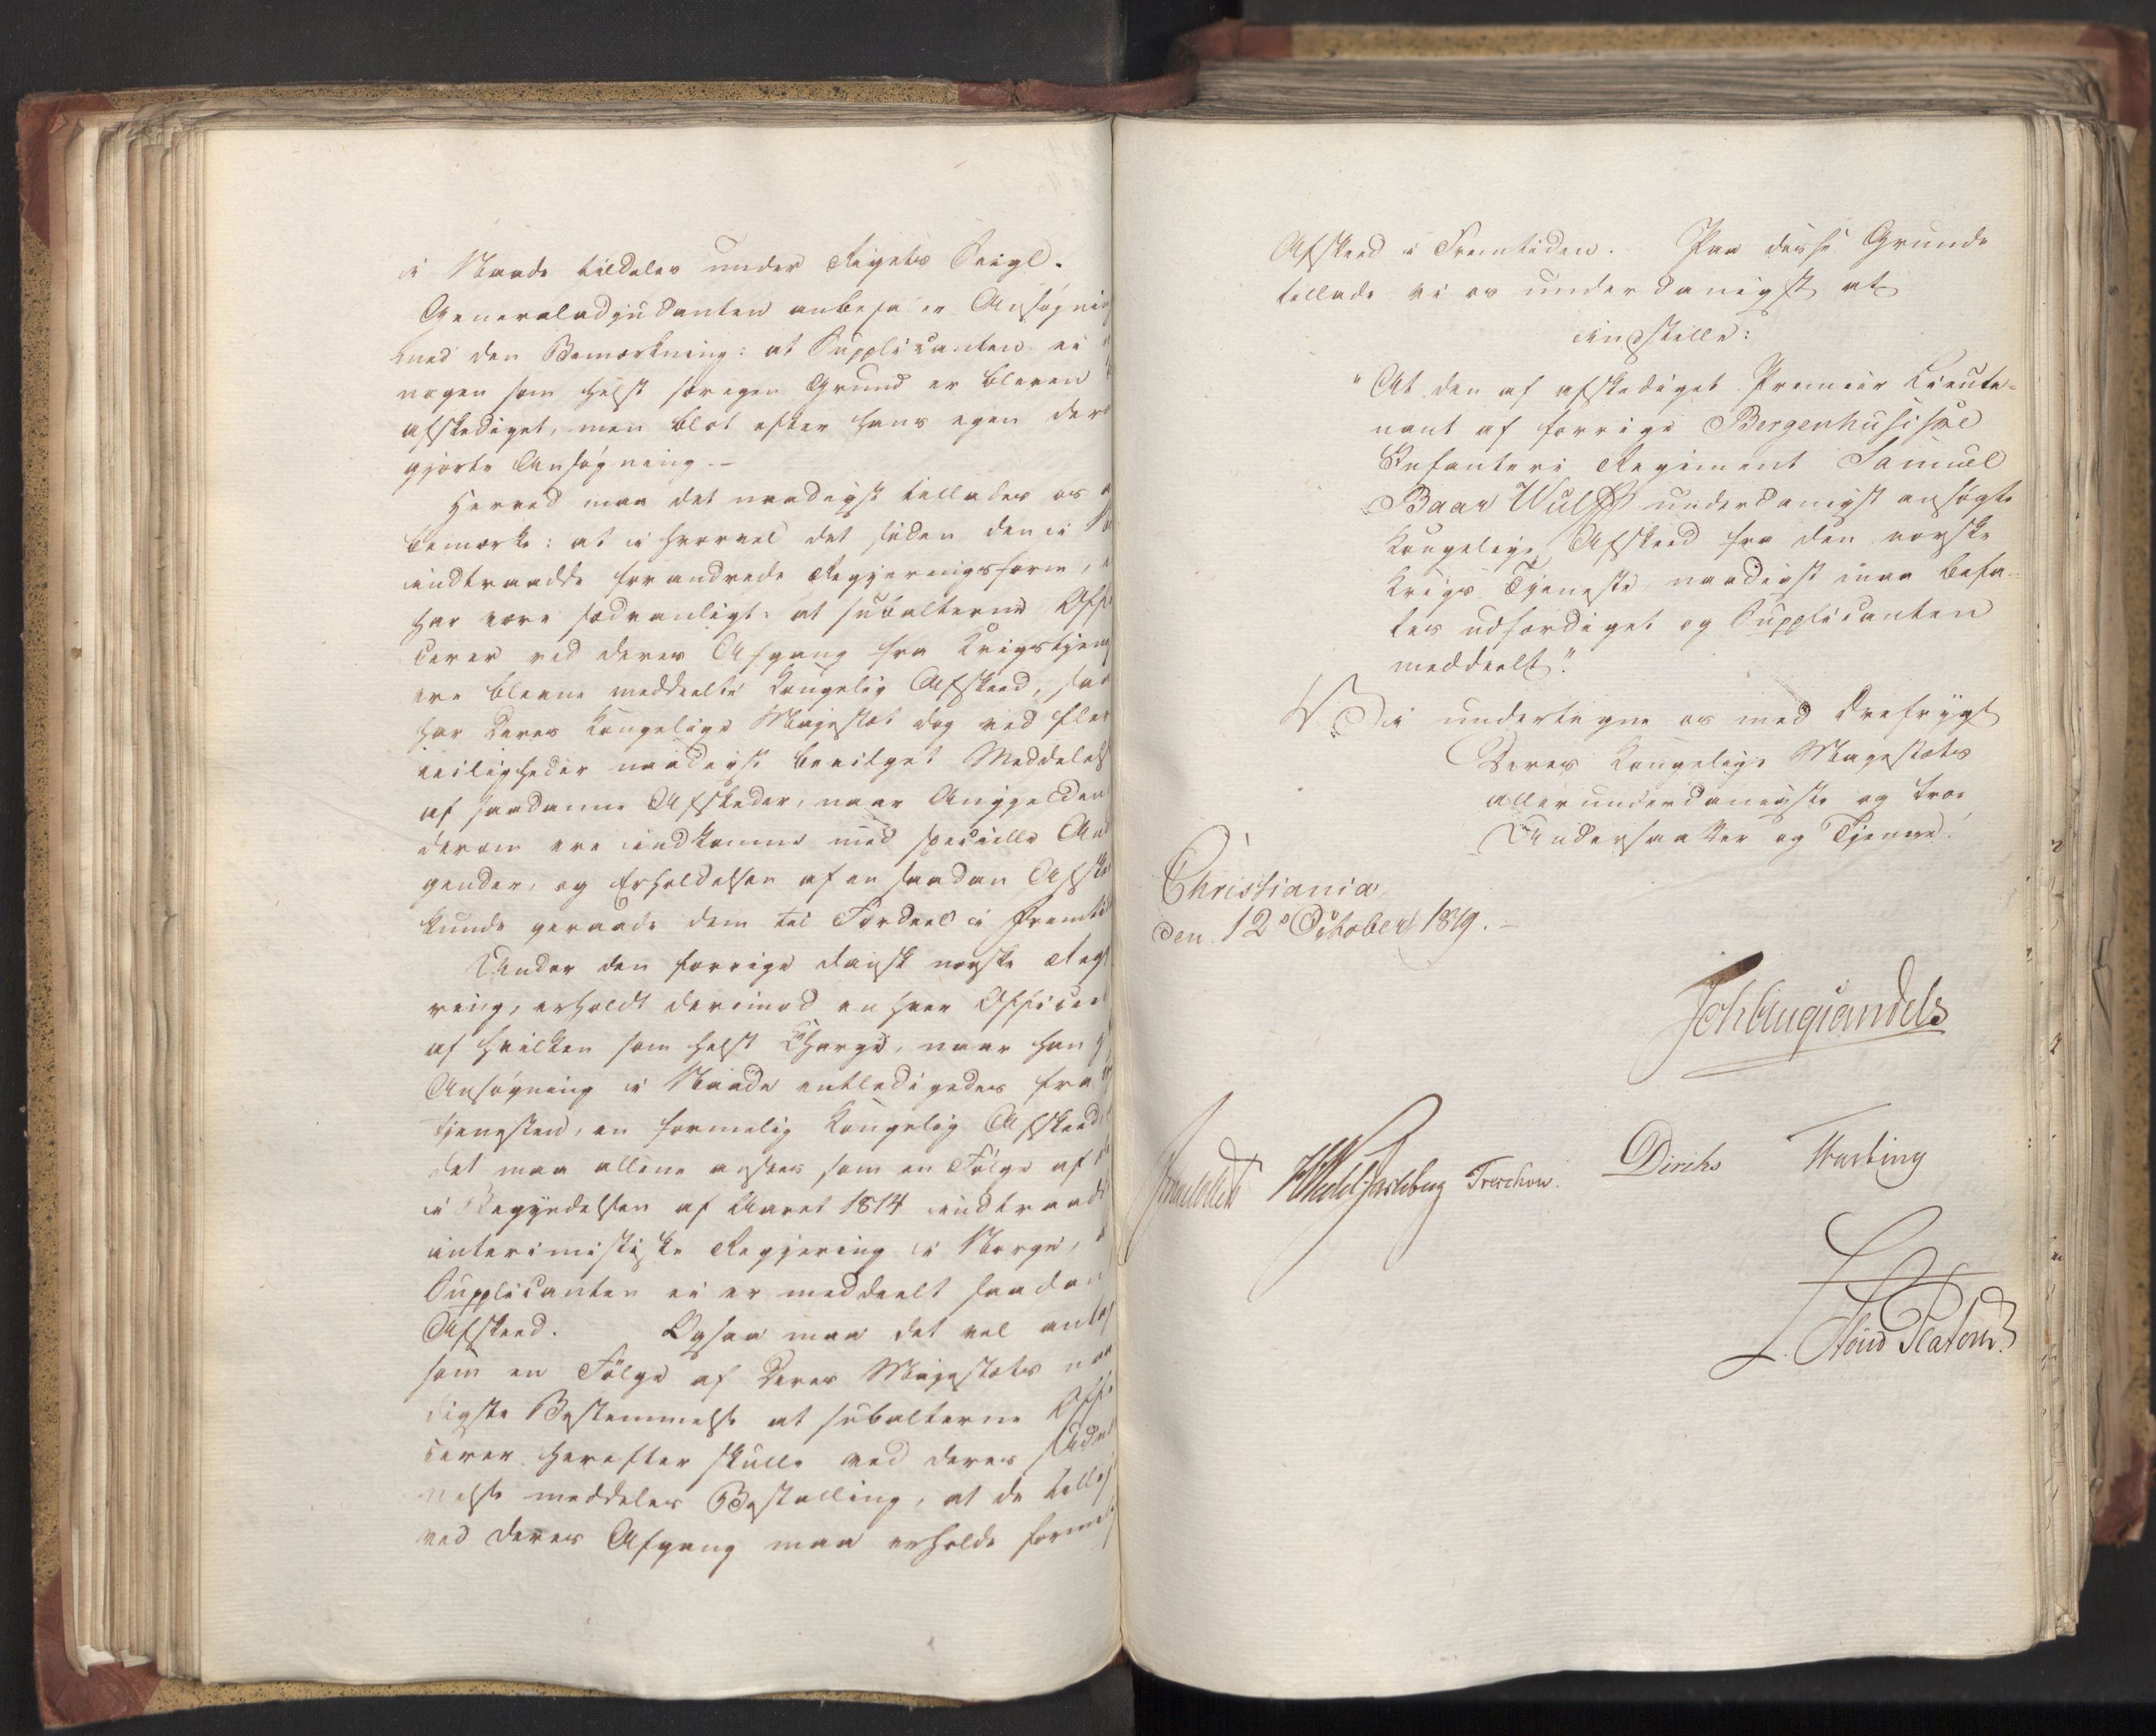 i Naade tildeles under Rigets Seigl.
Generaladjudanten anbefaler Ansøgnin
med den Bemærkning: at Supplicanten ei
nogen som helst særegen Grund er bleven
afskediget, men blot efter hans egen der
gjorte Ansøgning. –
Herved maa det naadigst tillades os
bemærke: at i hvorvel det siden den i
indtraadte forandrede Regjeringsform,
har være sædvanligt, at subalterne Offi
cerer ved deres Afgang fra Krigstjene
ere blevne meddeelte Kongelig Afskeed, saa
har Deres Kongelige Majestæt dog ved fler
Leiligheder naadigst bevilget Meddelels
af saadanne Afskeder, naar Angjeldende
derom ere indkomne med specielle An
gender, og Erholdelsen af en saadan Afske
kunde geraade dem til Fordeel i Fremtid
Under den forrige dansk norske Regje
ring, erholdt derimod en hver Officeer
af hvilken som helst Charge, naar han
Ansøgning i Naade entledigedes fra
Tjenesten, en formelig Kongelig Afskeed
det maa allene ansees som en Følge af
i Begyndelsen af Aaret 1814 indtraad
interimistiske Regjering i Norge,
Supplicanten ei er meddeelt saadan
Afskeed. Ogsaa maa det vel antag
som en Følge af Deres Majestæts naa
digste Bestemmelse at subalterne Offi
cerer herefter skulle ved deres Udnæv
nelse meddeles Bestalling, at de tillig
ved deres Afgang maa erholde formel
Afskeed i Fremtiden. Paa disse Grunde
tillade vi os underdanigst at
indstille:
"At den af afskediget Premier Lieute-
nant af forrige Bergenhusiske
Infanteri Regiment Samuel
Baar Wulff underdanigst ansøgte
Kongelige Afskeed fra den norske
Krigs Tjeneste naadigst maa befa-
les udfærdiget og Supplicanten
meddeelt."
Vi undertegne os med Ærefrygt
Deres Kongelige Majestæts
allerunderdanigste og troe
Undersaatter og Tjenere.
Christiania
den 12 October 1819. –
Joh Aug Sandels
Sommerhielm HWedel Jarlsberg Treschow. Diriks Fasting
L. Stoud Platou